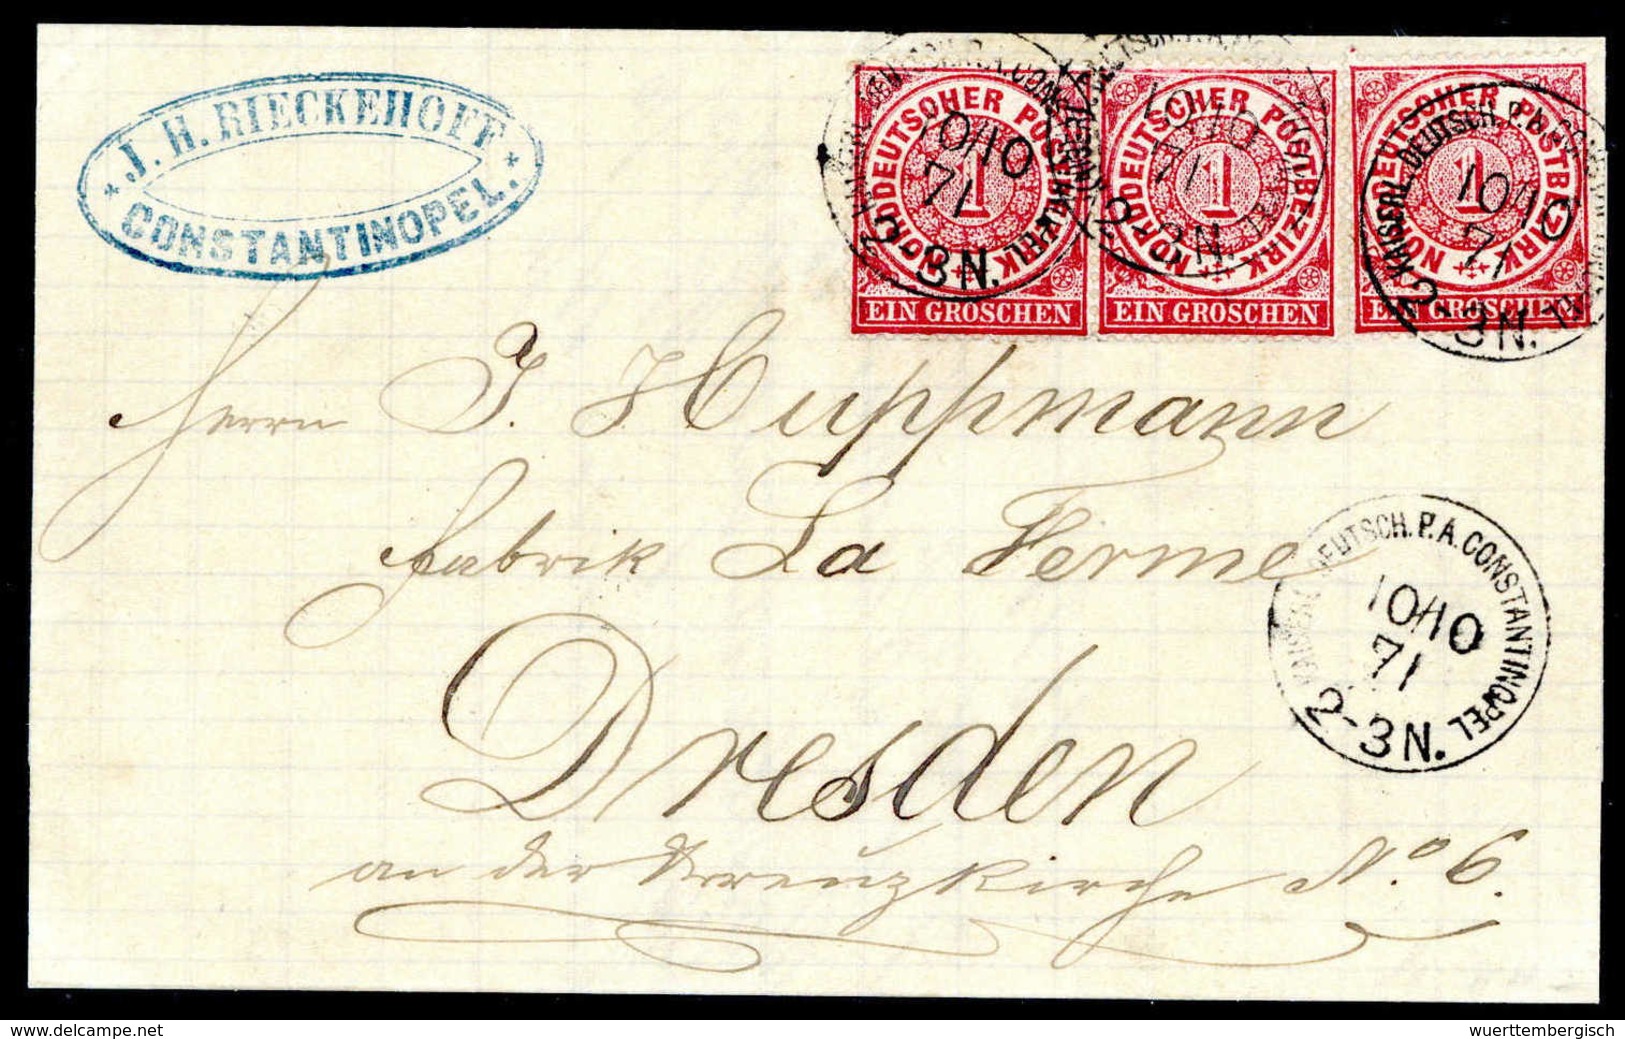 * J. H. RIECKEHOFF *
CONSTANTINOPEL.
NORDDEUTSCHER POSTBEZIRK
1
EIN GROSCHEN
NORDDEUTSCHER POSTBEZIRK
1
EIN GROSCHEN
NORDDEUTSCHER POSTBEZIRK
1
EIN GROSCHEN
10/10
71
2-3N.
10/10
71
2-3N.
KAISERL. DEUTSCH. P. A. CONSTANTINOPEL
10/10
71
2-3N.
Herrn J. F. Huppmann
Fabrik La Ferme
Dresden
an der Kreuzkirche No 6.
KAISERL. DEUTSCH. P. A. CONSTANTINOPEL
10/10
71
2-3N.
delcampe.net
wuerttembergisch